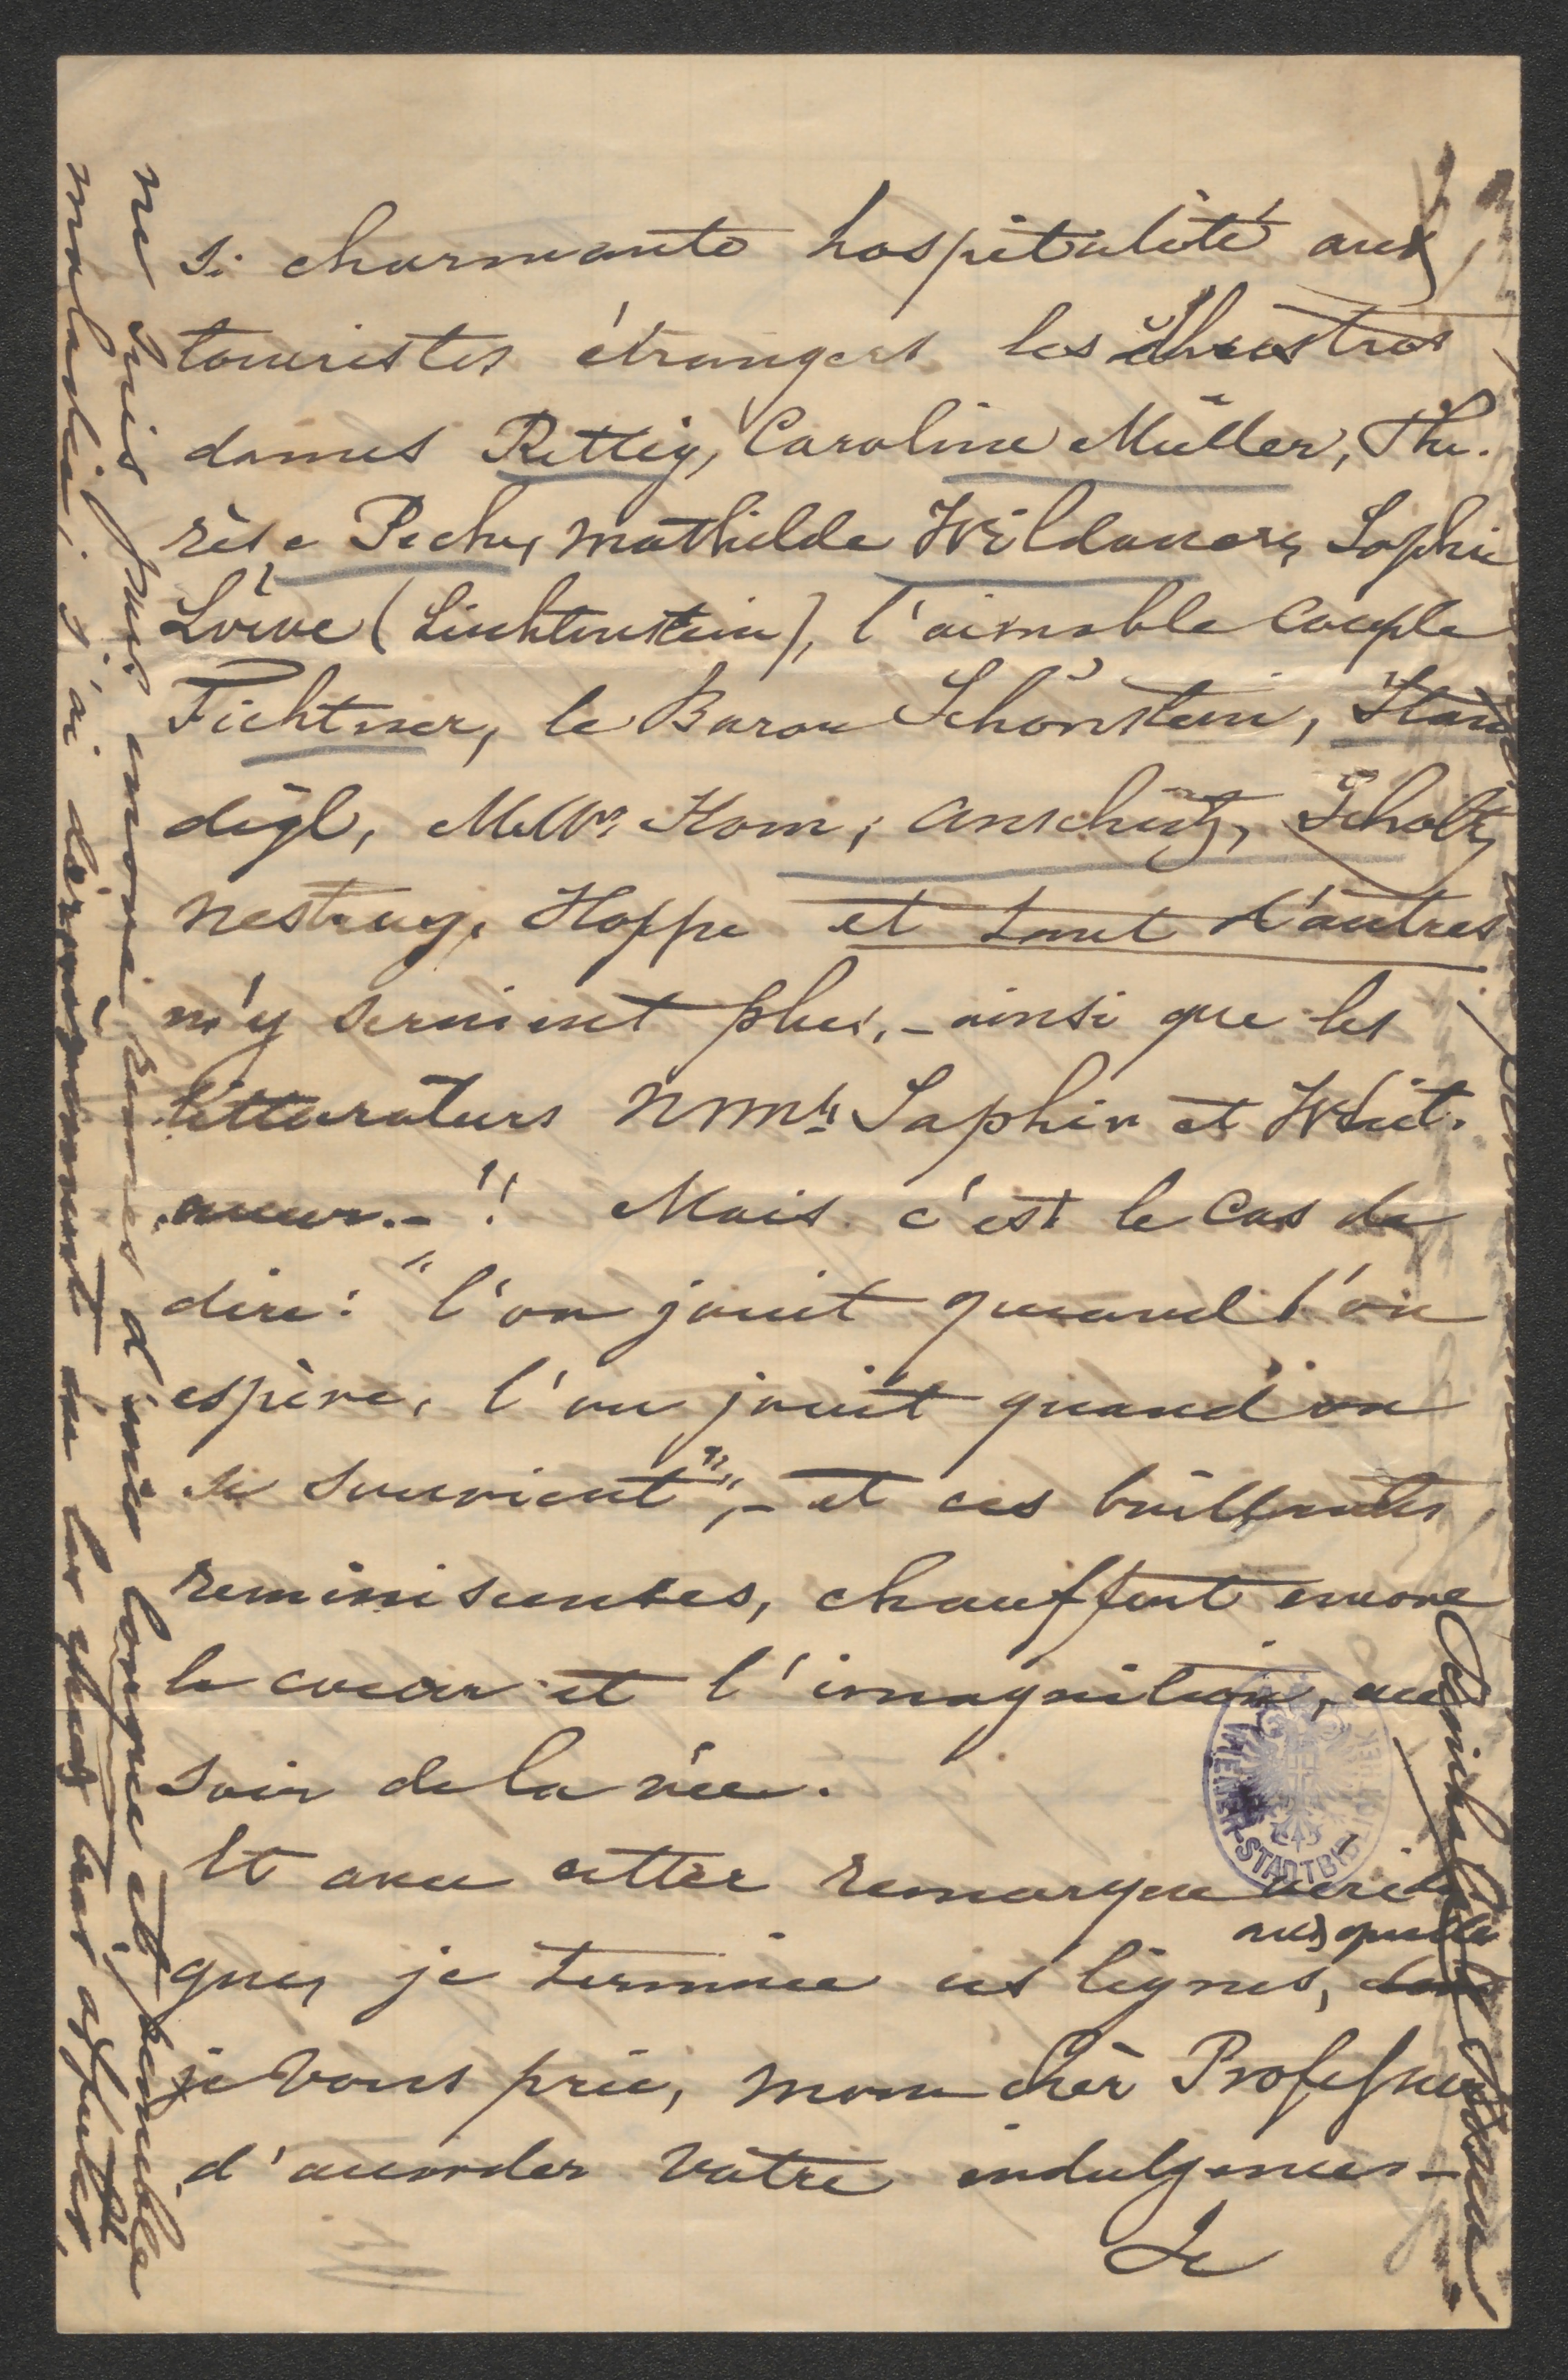 si charmante hospitalité aux
touristes étrangers les illustres
dames Rettig, Caroline Müller, Thé-
rèse Peche, Mathilde Wildauer, Sophie
Löwe (Lichtenstein), l'aimable couple
Fichtner, le Baron Schönstein, Stau
digl, Korn, Anschütz, Scholz,
Nestroy, Hoppe et tant d'autres
n'y seraient plus, - ainsi que les
litterateurs Saphir et Witt-
auer. - !! Mais c'est le cas de
dire: "l'on jouit quand l'on
espère, l'on jouit quand on
se souvient", - et ces brillantes
reminiscences, chauffent encore
le coeur et l'imagnition, au
soir de la vie.
Et avec cette remarque veridi
que, je termine ces lignes,
auxquelles
je vous prie, mon chèr Professeur
d'accorder votre indulgence -
Je
ne suis pas encore remis d'une longue et penible
maladie; j'ai dernièrement eu les yeux très affectés,
WIENER STADTBIBLIOTHEK